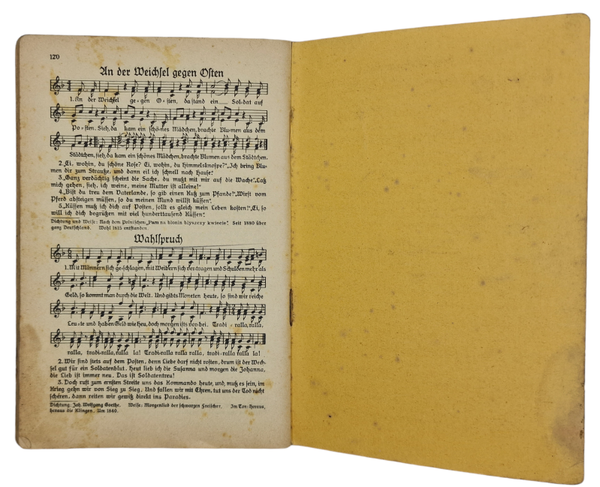 120
An der Weichsel gegen Osten
1. An der Weichsel ge-gen O-sten, da stand ein Sol-dat auf
Po-sten. Sieh, da kam ein schö-nes Mädchen, brachte Blu-men aus dem
Städtchen, sieh, da kam ein schönes Mädchen, brachte Blumen aus dem Städtchen.
2. „Ei, wohin, du schöne Rose? Ei, wohin, du Himmelsknospe?“ „Ich bring Blu-
men dir zum Strauße, und dann eil ich schnell nach Hause!“
3. „Ganz verdächtig scheint die Sache, du mußt mit mir auf die Wache“. „Laß
mich gehen, sieh, ich weine, meine Mutter ist alleine!“
4. „Bist du treu dem Vaterlande, so gib einen Kuß zum Pfande!“ „Wirst vom
Pferd absteigen müssen, so du meinen Mund willst küssen!“
5. „Küssen muß ich dich auf Posten, sollt es gleich mein Leben kosten!“ „Ei, so
will ich dich begrüßen mit viel hunderttausend Küssen!“
Dichtung und Weise: Nach dem Polnischen, Seit 1880 über
ganz Deutschland. Wohl 1835 entstanden.
Wahlspruch
1. Mit Männern sich ge-schlagen, mit Weibern sich ver-tragen und Schulden mehr als
Geld, so kommt man durch die Welt. Und gibts Moneten heute, so sind wir reiche
Leu-te und haben Geld wie Heu, doch morgen ists vor-bei. Tradi-ralla, ralla,
ralla, tradi-ralla, ralla la! Tradi-ralla ralla ralla, tradi-ralla, ralla la!
2. Wir sind stets auf dem Posten, denn Liebe darf nicht rosten, drum ist der Wech-
sel gut für ein Soldatenblut. Heut lieb ich die Susanna und morgen die Johanna,
die Lieb ist immer neu. Das ist Soldatentreu!
3. Doch ruft zum ernsten Streite uns das Kommando heute, und, muß es sein, im
Krieg gehn wir von Sieg zu Sieg. Und fallen wir mit Ehren, tut uns der Tod nicht
scheren, dann reiten wir gewiß direkt ins Paradies.
Dichtung: Joh. Wolfgang Goethe. Weise: Morgenlied der schwarzen Freischar. Im Ton: Heraus,
heraus die Klingen. Um 1840.